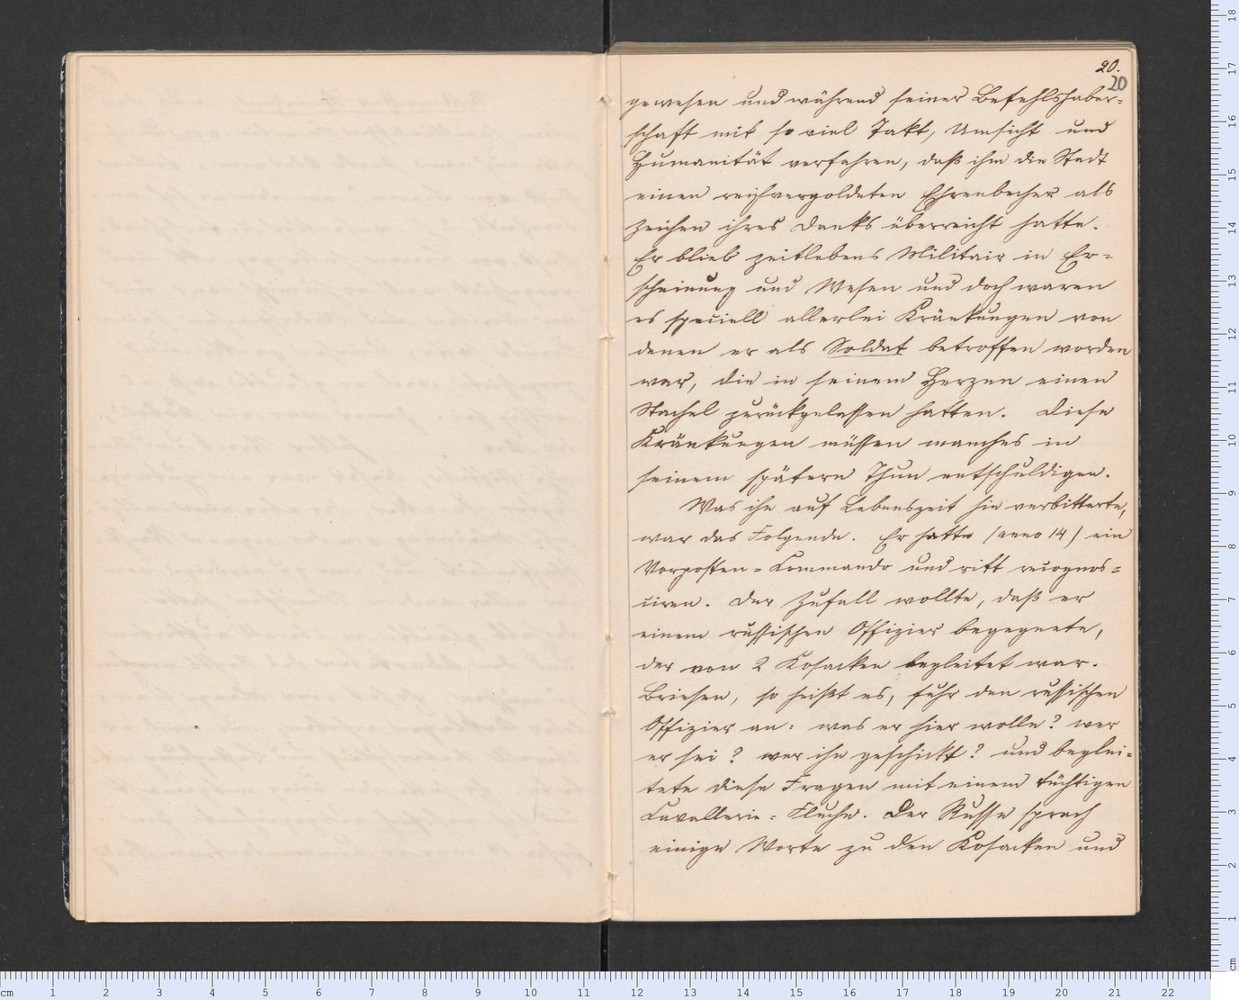 20.
20
gewesen und während seiner Befehlshaber-
schaft mit so viel Takt, Umsicht und
Humanität verfahren, daß ihm die Stadt
einen reichvergoldeten Ehrenbecher als
Zeichen ihres Danks überreicht hatte.
Er blieb zeitlebens Militair in Er-
scheinung und Wesen und doch waren
es speciell allerlei Kränkungen von
denen er als Soldat betroffen worden
war, die in seinem Herzen einen
Stachel zurückgelassen hatten. Diese
Kränkungen müssen manches in
seinem spätern Thun entschuldigen.
Was ihn auf Lebenszeit hin verbitterte,
war das Folgende. Er hatte (anno 14) ein
Vorposten-Commando und ritt recognos-
ciren. Der Zufall wollte, daß er
einem russischen Offizier begegnete,
der von 2 Kosacken begleitet war.
Briesen, so heißt es, fuhr den russischen
Offizier an: was er hier wolle? wer
er sei? wer ihn geschickt? und beglei-
tete diese Fragen mit einem tüchtigen
Cavallerie-Fluche. Der Russe sprach
einige Worte zu den Kosacken und